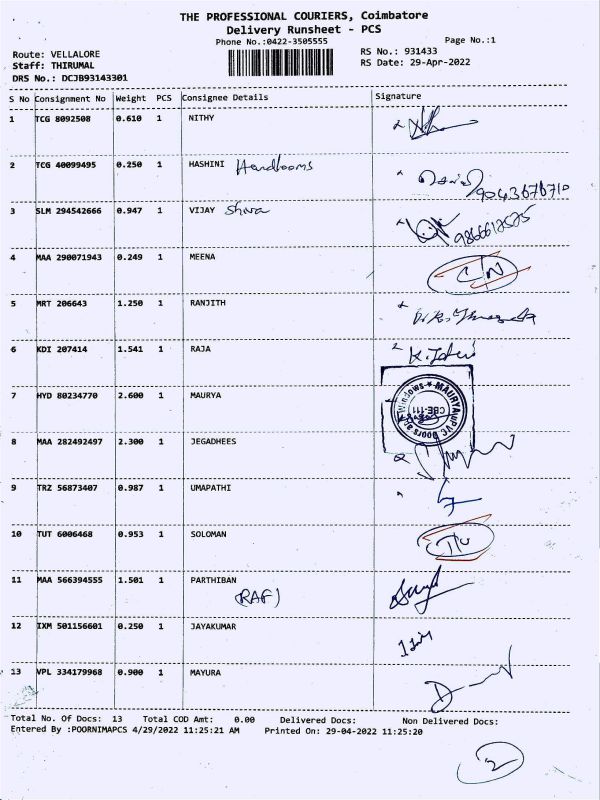 THE PROFESSIONAL COURIERS, Coimbatore
Delivery Runsheet - PCS
Phone No.:0422-3505555
Page No.:1
Route: VELLALORE
RS No.: 931433
Staff: THIRUMAL
RS Date: 29-Apr-2022
DRS No.: DCJB93143301
S No Consignment No Weight PCS Consignee Details Signature
1 TCG 8092508 0.610 1 NITHY
2 TCG 40099495 0.250 1 HASHINI Handlooms
9043676710
3 SLM 294542666 0.947 1 VIJAY Shiva
4 MAA 290071943 0.249 1 MEENA
5 MRT 206643 1.250 1 RANJITH
6 KDI 207414 1.541 1 RAJA
7 HYD 80234770 2.600 1 MAURYA
8 MAA 282492497 2.300 1 JEGADHEES
9 TRZ 56873407 0.987 1 UMAPATHI
10 TUT 6006468 0.953 1 SOLOMAN
11 MAA 566394555 1.501 1 PARTHIBAN
(RAF)
12 IXM 501156601 0.250 1 JAYAKUMAR
13 VPL 334179968 0.900 1 MAYURA
Total No. Of Docs: 13 Total COD Amt: 0.00 Delivered Docs: Non Delivered Docs:
Entered By :POORNIMAPCS 4/29/2022 11:25:21 AM Printed On: 29-04-2022 11:25:20
2